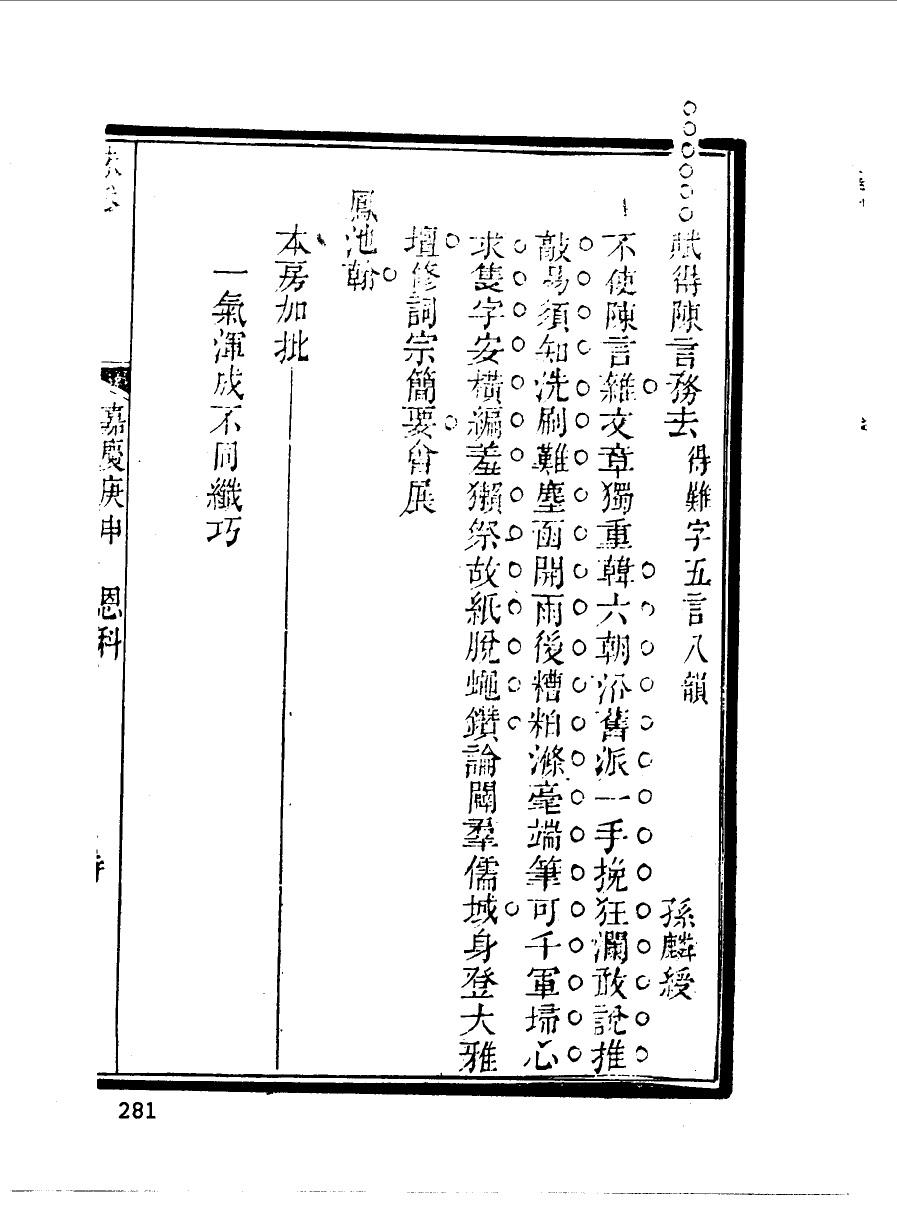 賦得陳言務去 得難字五言八韻
孫麟綬
不使陳言雜文章獨重韓六朝沿舊派一手挽狂瀾敢說推
敲易須知洗刷難塵面開雨後糟粕滌毫端筆可千軍埽心
求隻字安橫編羞獺祭故紙脫蠅鑽論闢羣儒域身登大雅
壇修詞宗簡要曾展
鳳池翰
本房加批
一氣渾成不同纖巧
嘉慶庚申 恩科
281